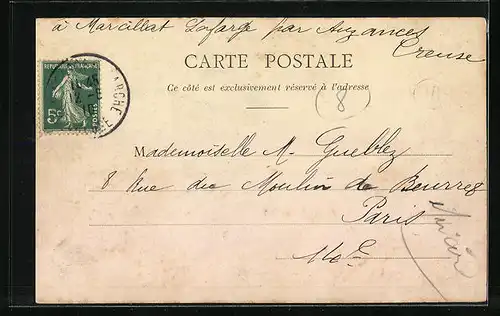 à Marcillat Lafarge par Auzances
Creuse
CARTE POSTALE
Ce côté est exclusivement réservé à l'adresse
8
REPUBLIQUE FRANÇAISE
POSTES
5c
ARCHE
Mademoiselle M. Gueblez
8 Rue du Moulin de Beurreg
Paris